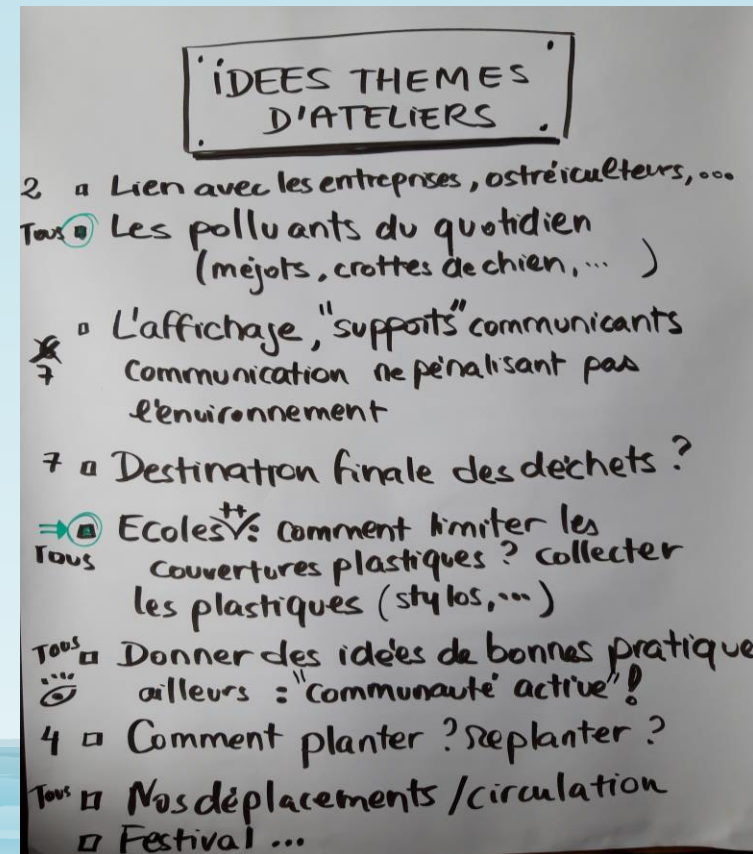 iDEES THEMES
D'ATELIERS
2 Lien avec les entreprises, ostréiculteurs, ...
Tous Les polluants du quotidien
(mégots, crottes de chien, ... )
L'affichage, "supports" communicants
7 Communication ne pénalisant pas
l'environnement
7 Destination finale des déchets ?
⇒ Ecoles ++ : Comment limiter les
Tous couvertures plastiques ? collecter
les plastiques (stylos, ...)
Tous Donner des idées de bonnes pratique
ailleurs : "Communauté active" !
4 Comment planter ? Replanter ?
Tous Nos déplacements / circulation
Festival ...